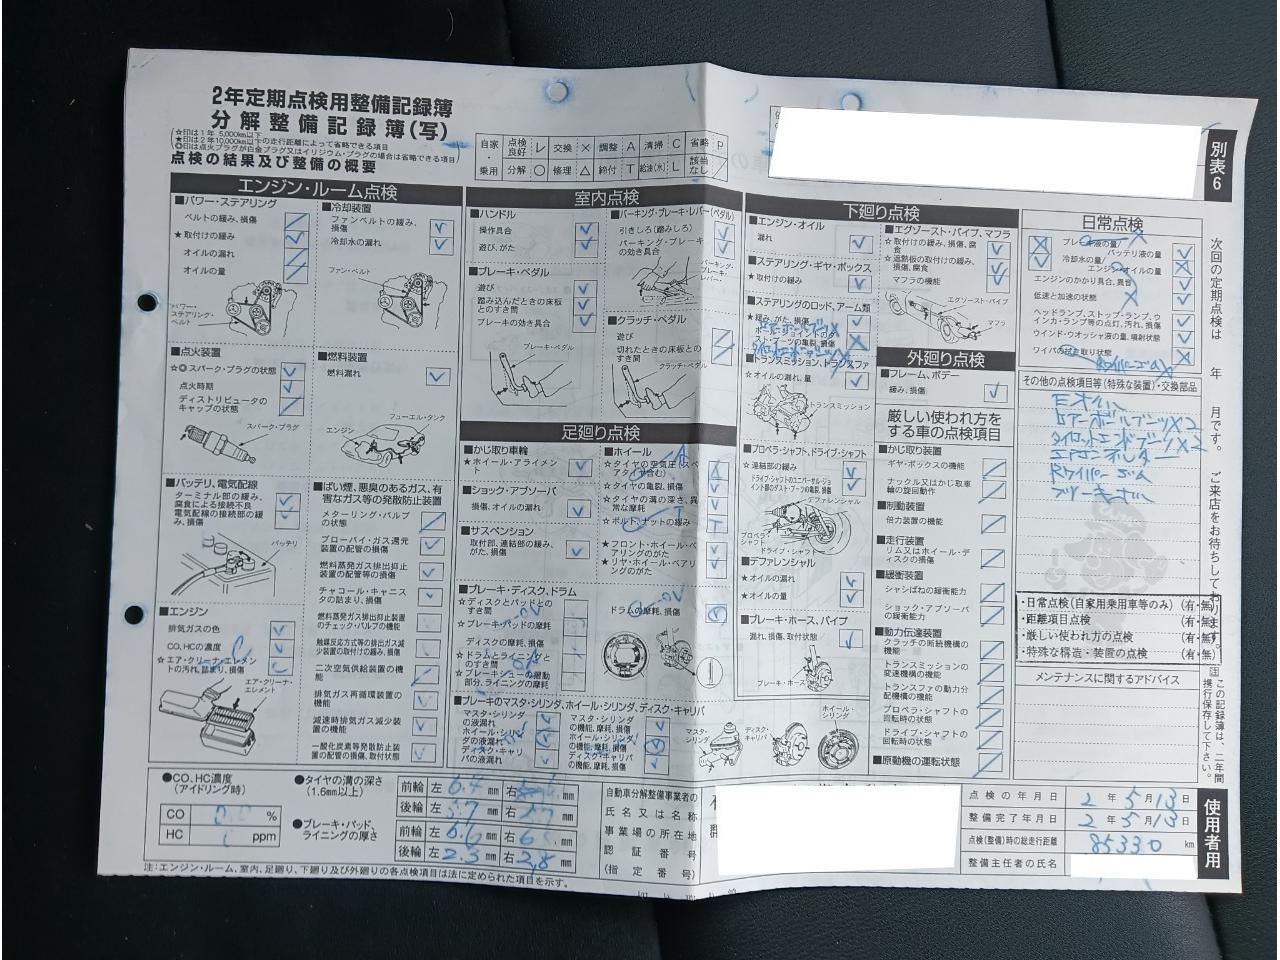 2年定期点検用整備記録簿
分解整備記録簿(写)
☆印は1年 5,000km以下
★印は2年10,000km以下の走行距離によって省略できる項目
◎印は点火プラグが白金プラグ又はイリジウム・プラグの場合は省略できる項目
点検の結果及び整備の概要
自家・乗用
点検良好 レ 交換 × 調整 A 清掃 C 省略 P
分解 ○ 修理 △ 締付 T 給油(水) L 該当なし /
別表6
エンジン・ルーム点検
■パワー・ステアリング
ベルトの緩み、損傷
★取付けの緩み
オイルの漏れ
オイルの量
パワー・ステアリング・ベルト
■冷却装置
ファンベルトの緩み、損傷
冷却水の漏れ
ファン・ベルト
■点火装置
☆◎スパーク・プラグの状態
点火時期
ディストリビュータのキャップの状態
スパーク・プラグ
■燃料装置
燃料漏れ
エンジン
フューエル・タンク
■バッテリ、電気配線
ターミナル部の緩み、腐食による接続不良
電気配線の接続部の緩み、損傷
バッテリ
■エンジン
排気ガスの色
CO、HCの濃度
☆エア・クリーナ・エレメントの汚れ、詰まり、損傷
エア・クリーナ・エレメント
■ばい煙、悪臭のあるガス、有害なガス等の発散防止装置
メターリング・バルブの状態
ブローバイ・ガス還元装置の配管の損傷
燃料蒸発ガス排出抑止装置の配管等の損傷
チャコール・キャニスタの詰まり、損傷
燃料蒸発ガス排出抑止装置のチェック・バルブの機能
触媒反応方式等の排出ガス減少装置の取付けの緩み、損傷
二次空気供給装置の機能
排気ガス再循環装置の機能
減速時排気ガス減少装置の機能
一酸化炭素等発散防止装置の配管の損傷、取付状態
室内点検
■ハンドル
操作具合
遊び、がた
■ブレーキ・ペダル
遊び
踏み込んだときの床板とのすき間
ブレーキの効き具合
ブレーキ・ペダル
■パーキング・ブレーキ・レバー(ペダル)
引きしろ(踏みしろ)
パーキング・ブレーキの効き具合
パーキング・ブレーキ・レバー
■クラッチ・ペダル
遊び
切れたときの床板とのすき間
クラッチ・ペダル
足廻り点検
■かじ取り車輪
★ホイール・アライメント
■ショック・アブソーバ
損傷、オイルの漏れ
■サスペンション
取付部、連結部の緩み、がた、損傷
■ホイール
☆タイヤの空気圧(スペアタイヤ含む)
☆タイヤの亀裂、損傷
☆タイヤの溝の深さ、異常な摩耗
☆ボルト、ナットの緩み
★フロント・ホイール・ベアリングのがた
★リヤ・ホイール・ベアリングのがた
■ブレーキ・ディスク、ドラム
☆ディスクとパッドとのすき間
☆ブレーキ・パッドの摩耗
ディスクの摩耗、損傷
☆ドラムとライニングとのすき間
☆ブレーキシューの摺動部分、ライニングの摩耗
ドラムの摩耗、損傷
■ブレーキのマスタ・シリンダ、ホイール・シリンダ、ディスク・キャリパ
マスタ・シリンダの液漏れ
ホイール・シリンダの液漏れ
ディスク・キャリパの液漏れ
マスタ・シリンダの機能、摩耗、損傷
ホイール・シリンダの機能、摩耗、損傷
ディスク・キャリパの機能、摩耗、損傷
マスタ・シリンダ
ディスク・キャリパ
ホイール・シリンダ
下廻り点検
■エンジン・オイル
漏れ
■ステアリング・ギヤ・ボックス
★取付けの緩み
■ステアリングのロッド、アーム類
★緩み、がた、損傷
ボール・ジョイントのダスト・ブーツの亀裂、損傷
■トランスミッション、トランスファ
☆オイルの漏れ、量
トランスミッション
■プロペラ・シャフト、ドライブ・シャフト
★連結部の緩み
ドライブ・シャフトのユニバーサル・ジョイント部のダスト・ブーツの亀裂、損傷
デファレンシャル
プロペラ・シャフト
ドライブ・シャフト
■デファレンシャル
★オイルの漏れ
★オイルの量
■ブレーキ・ホース、パイプ
漏れ、損傷、取付状態
ブレーキ・ホース
■エグゾースト・パイプ、マフラ
☆取付けの緩み、損傷、腐食
☆遮熱板の取付けの緩み、損傷、腐食
マフラの機能
エグゾースト・パイプ
マフラ
外廻り点検
■フレーム、ボデー
緩み、損傷
厳しい使われ方をする車の点検項目
■かじ取り装置
ギヤ・ボックスの機能
ナックル又はかじ取り車輪の旋回動作
■制動装置
倍力装置の機能
■走行装置
リム又はホイール・ディスクの損傷
■緩衝装置
シャシばねの緩衝能力
ショック・アブソーバの緩衝能力
■動力伝達装置
クラッチの断続機構の機能
トランスミッションの変速機構の機能
トランスファの動力分配機構の機能
プロペラ・シャフトの回転時の状態
ドライブ・シャフトの回転時の状態
■原動機の運転状態
日常点検
ブレーキ液の量
冷却水の量
バッテリ液の量
エンジン・オイルの量
エンジンのかかり具合、異音
低速と加速の状態
ヘッドランプ、ストップ・ランプ、ウインカ・ランプ等の点灯、汚れ、損傷
ウインド・ウオッシャ液の量、噴射状態
ワイパの拭き取り状態
その他の点検項目等(特殊な装置)・交換部品
Eオイル
ロアーボールブーツX2
タイロットエンドブーツX2
エアコンフィルター
Rワイパーゴム
ブレーキオイル
・日常点検(自家用乗用車等のみ) (有・無)
・距離項目点検 (有・無)
・厳しい使われ方の点検 (有・無)
・特殊な構造・装置の点検 (有・無)
メンテナンスに関するアドバイス
次回の定期点検は 年 月です。ご来店をお待ちしております。
注 この記録簿は、二年間携行保存して下さい。
使用者用
●CO、HC濃度(アイドリング時)
CO %
HC ppm
●タイヤの溝の深さ(1.6mm以上)
前輪 左 6.4 mm 右 mm
後輪 左 5.7 mm 右 mm
●ブレーキ・パッド、ライニングの厚さ
前輪 左 6.6 mm 右 mm
後輪 左 2.3 mm 右 2.8 mm
自動車分解整備事業者の
氏名又は名称
事業場の所在地
認証番号
(指定番号)
点検の年月日 2年5月13日
整備完了年月日 2年5月13日
点検(整備)時の総走行距離 85330 km
整備主任者の氏名
注:エンジン・ルーム、室内、足廻り、下廻り及び外廻りの各点検項目は法に定められた項目を示す。